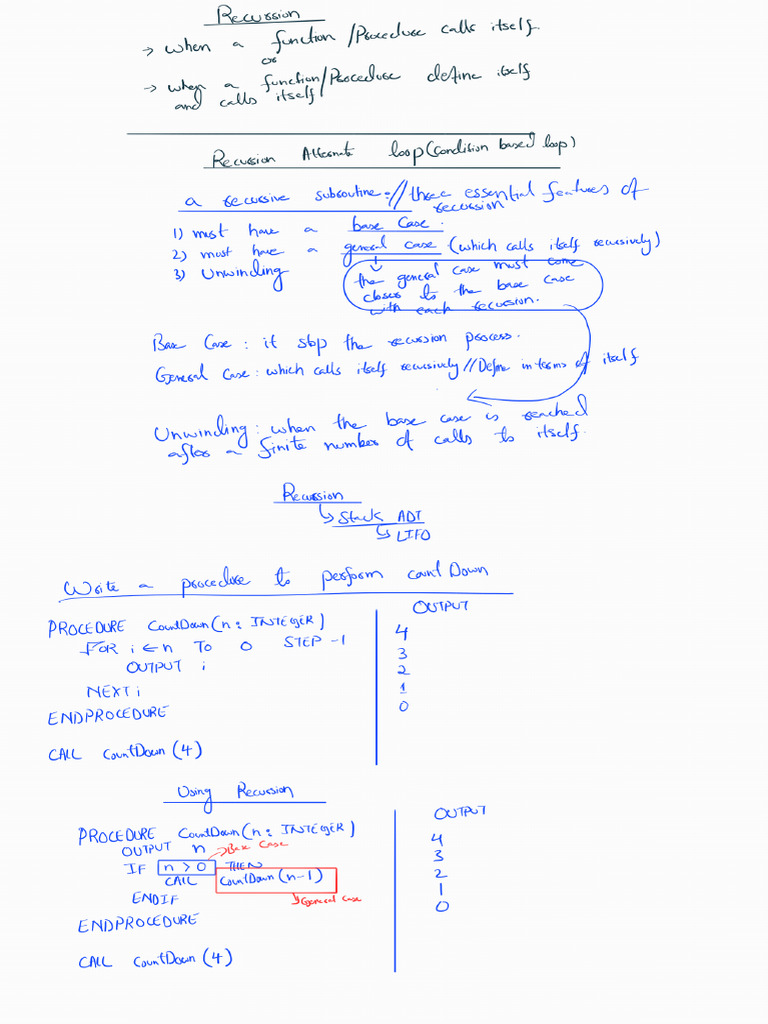 Recursion
→ when a function/Procedure calls itself.
or
→ when a function/Procedure define itself
and calls itself
Recursion Alternate loop (condition based loop)
a recursive subroutine: // three essential features of
recursion
1) must have a base case.
2) must have a general case (which calls itself recursively)
3) Unwinding
the general case must come
closer to the base case
with each recursion.
Base Case: it stop the recursion process.
General Case: which calls itself recursively // Define in terms of itself
Unwinding: when the base case is reached
after a finite number of calls to itself.
Recursion
↳ Stack ADT
↳ LIFO
Write a procedure to perform countDown
PROCEDURE CountDown(n: INTEGER)
FOR i ← n TO 0 STEP -1
OUTPUT i
NEXT i
ENDPROCEDURE
CALL CountDown(4)
OUTPUT
4
3
2
1
0
Using Recursion
PROCEDURE CountDown(n: INTEGER)
OUTPUT n
→ Base Case
IF n > 0 THEN
CALL CountDown(n-1)
→ General case
ENDIF
ENDPROCEDURE
CALL CountDown(4)
OUTPUT
4
3
2
1
0